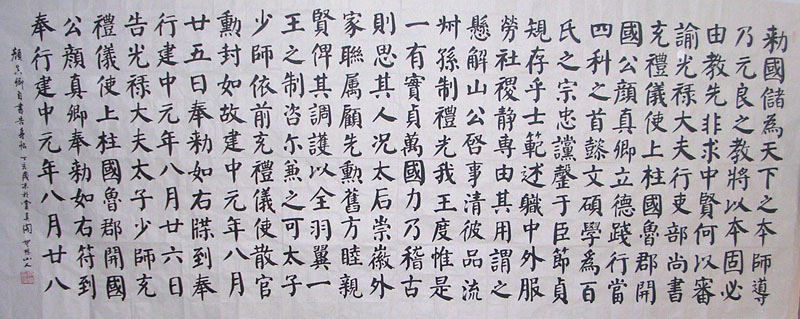 勅國儲為天下之本師導
乃元良之教將以本固必
由教先非求中賢何以審
諭光禄大夫行吏部尚書
充禮儀使上柱國魯郡開
國公顔真卿立德踐行當
四科之首懿文碩學為百
氏之宗忠讜罄于臣節貞
規存乎士範述職中外服
勞社稷静専由其用謂之
懸解山公啓事清彼品流
孫制禮光我王度惟是
一有實貞萬國力乃稽古
則思其人况太后崇徽外
家聯属顧先勳舊方睦親
賢俾其調護以全羽翼一
王之制咨尔兼之可太子
少師依前充禮儀使散官
勳封如故建中元年八月
廿五日奉勑如右牒到奉
行建中元年八月廿六日
告光禄大夫太子少師充
禮儀使上柱國魯郡開國
公顔真卿奉勑如右符到
奉行建中元年八月廿八
顏真卿自書告身帖 丁亥歲末